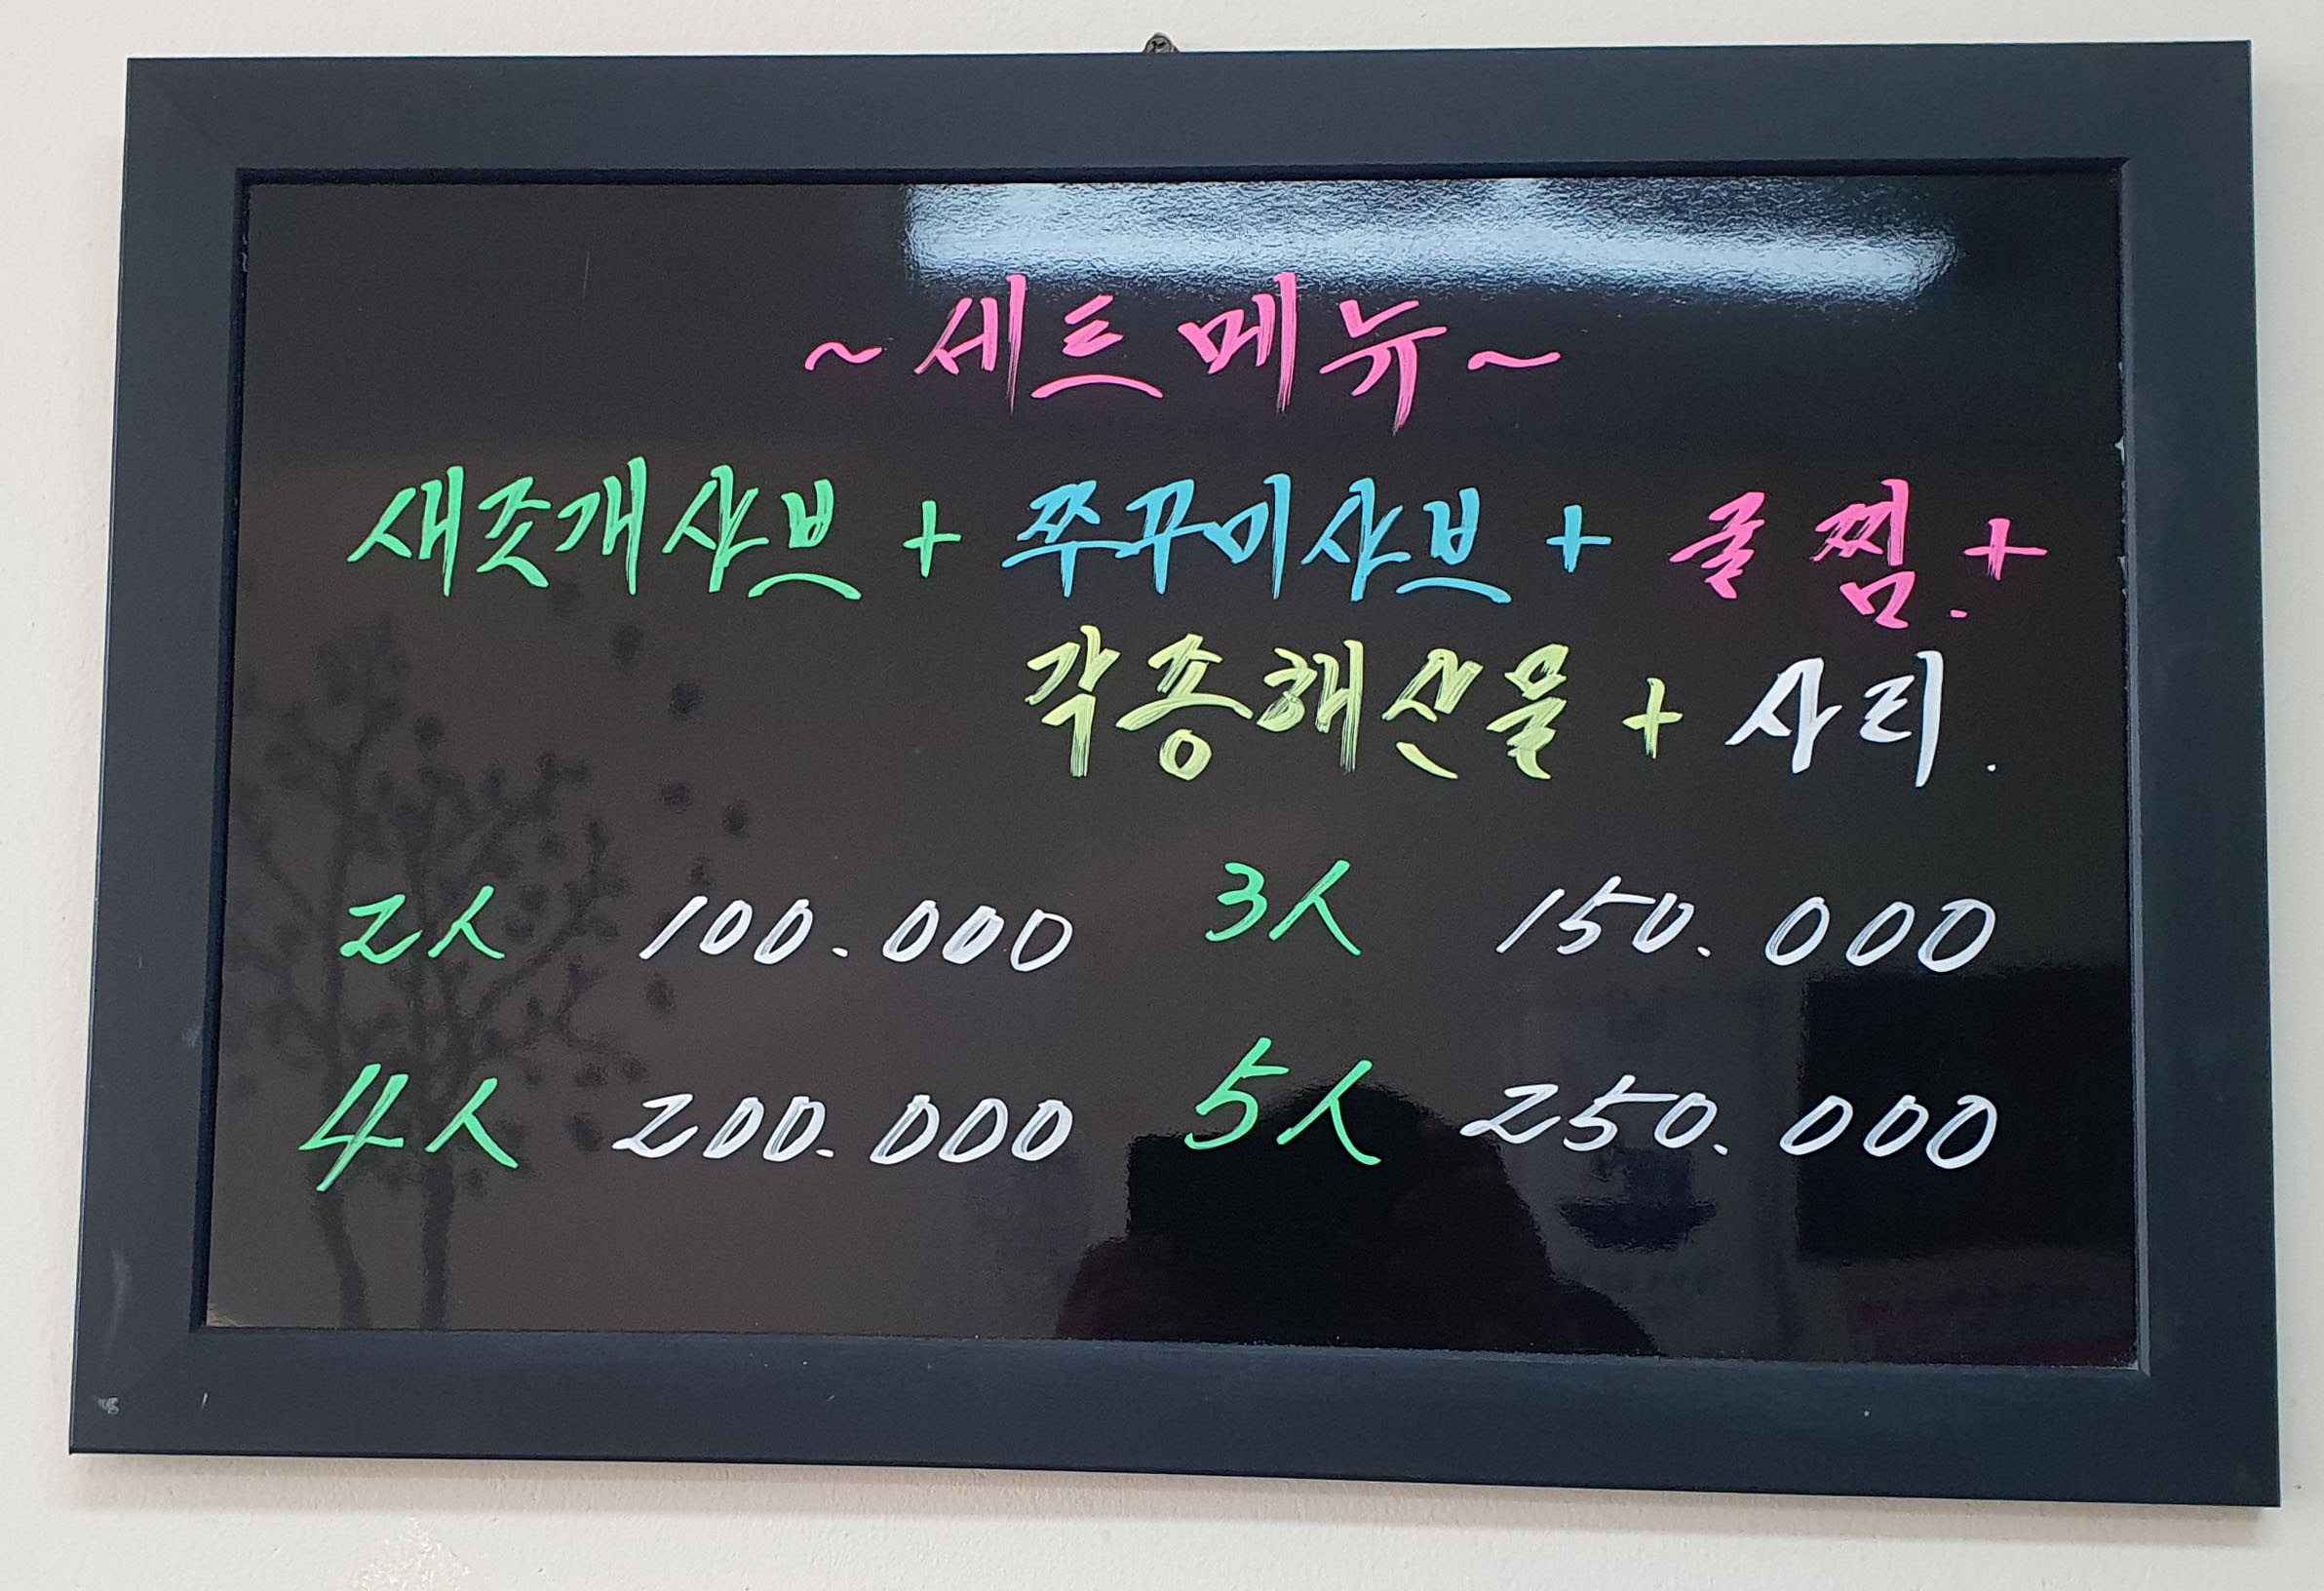 ~세트메뉴~
새조개샤브 + 쭈꾸미샤브 + 굴찜.+
각종해산물 + 사리.
2人 100.000 3人 150.000
4人 200.000 5人 250.000